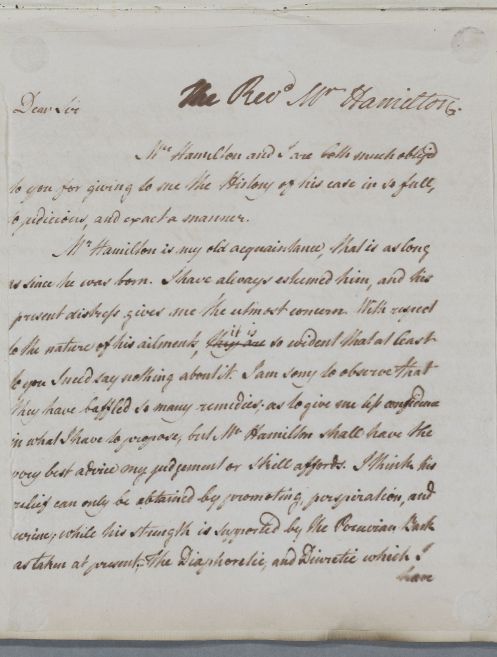 The Revd Mr Hamilton
Dear Sir
Mr Hamilton and I are both much oblig'd
to you for giving to me the History of his case in so full,
so judicious, and exact a manner.
Mr Hamilton is my old acquaintance, that is as long
as since he was born. I have always esteemed him, and his
present distress gives me the utmost concern. With respect
to the nature of his ailment, they are it is so evident that at least
to you I need say nothing about it. I am sorry to observe that
they have baffled so many remedies, as to give me less confidence
in what I have to propose, but Mr Hamilton shall have the
very best advice my judgement or skill affords. I think his
relief can only be obtained by promoting, perspiration, and
urine; while his strength is supported by the Peruvian Bark
as taken at present. The Diaphoretic, and Diuretic which I
have